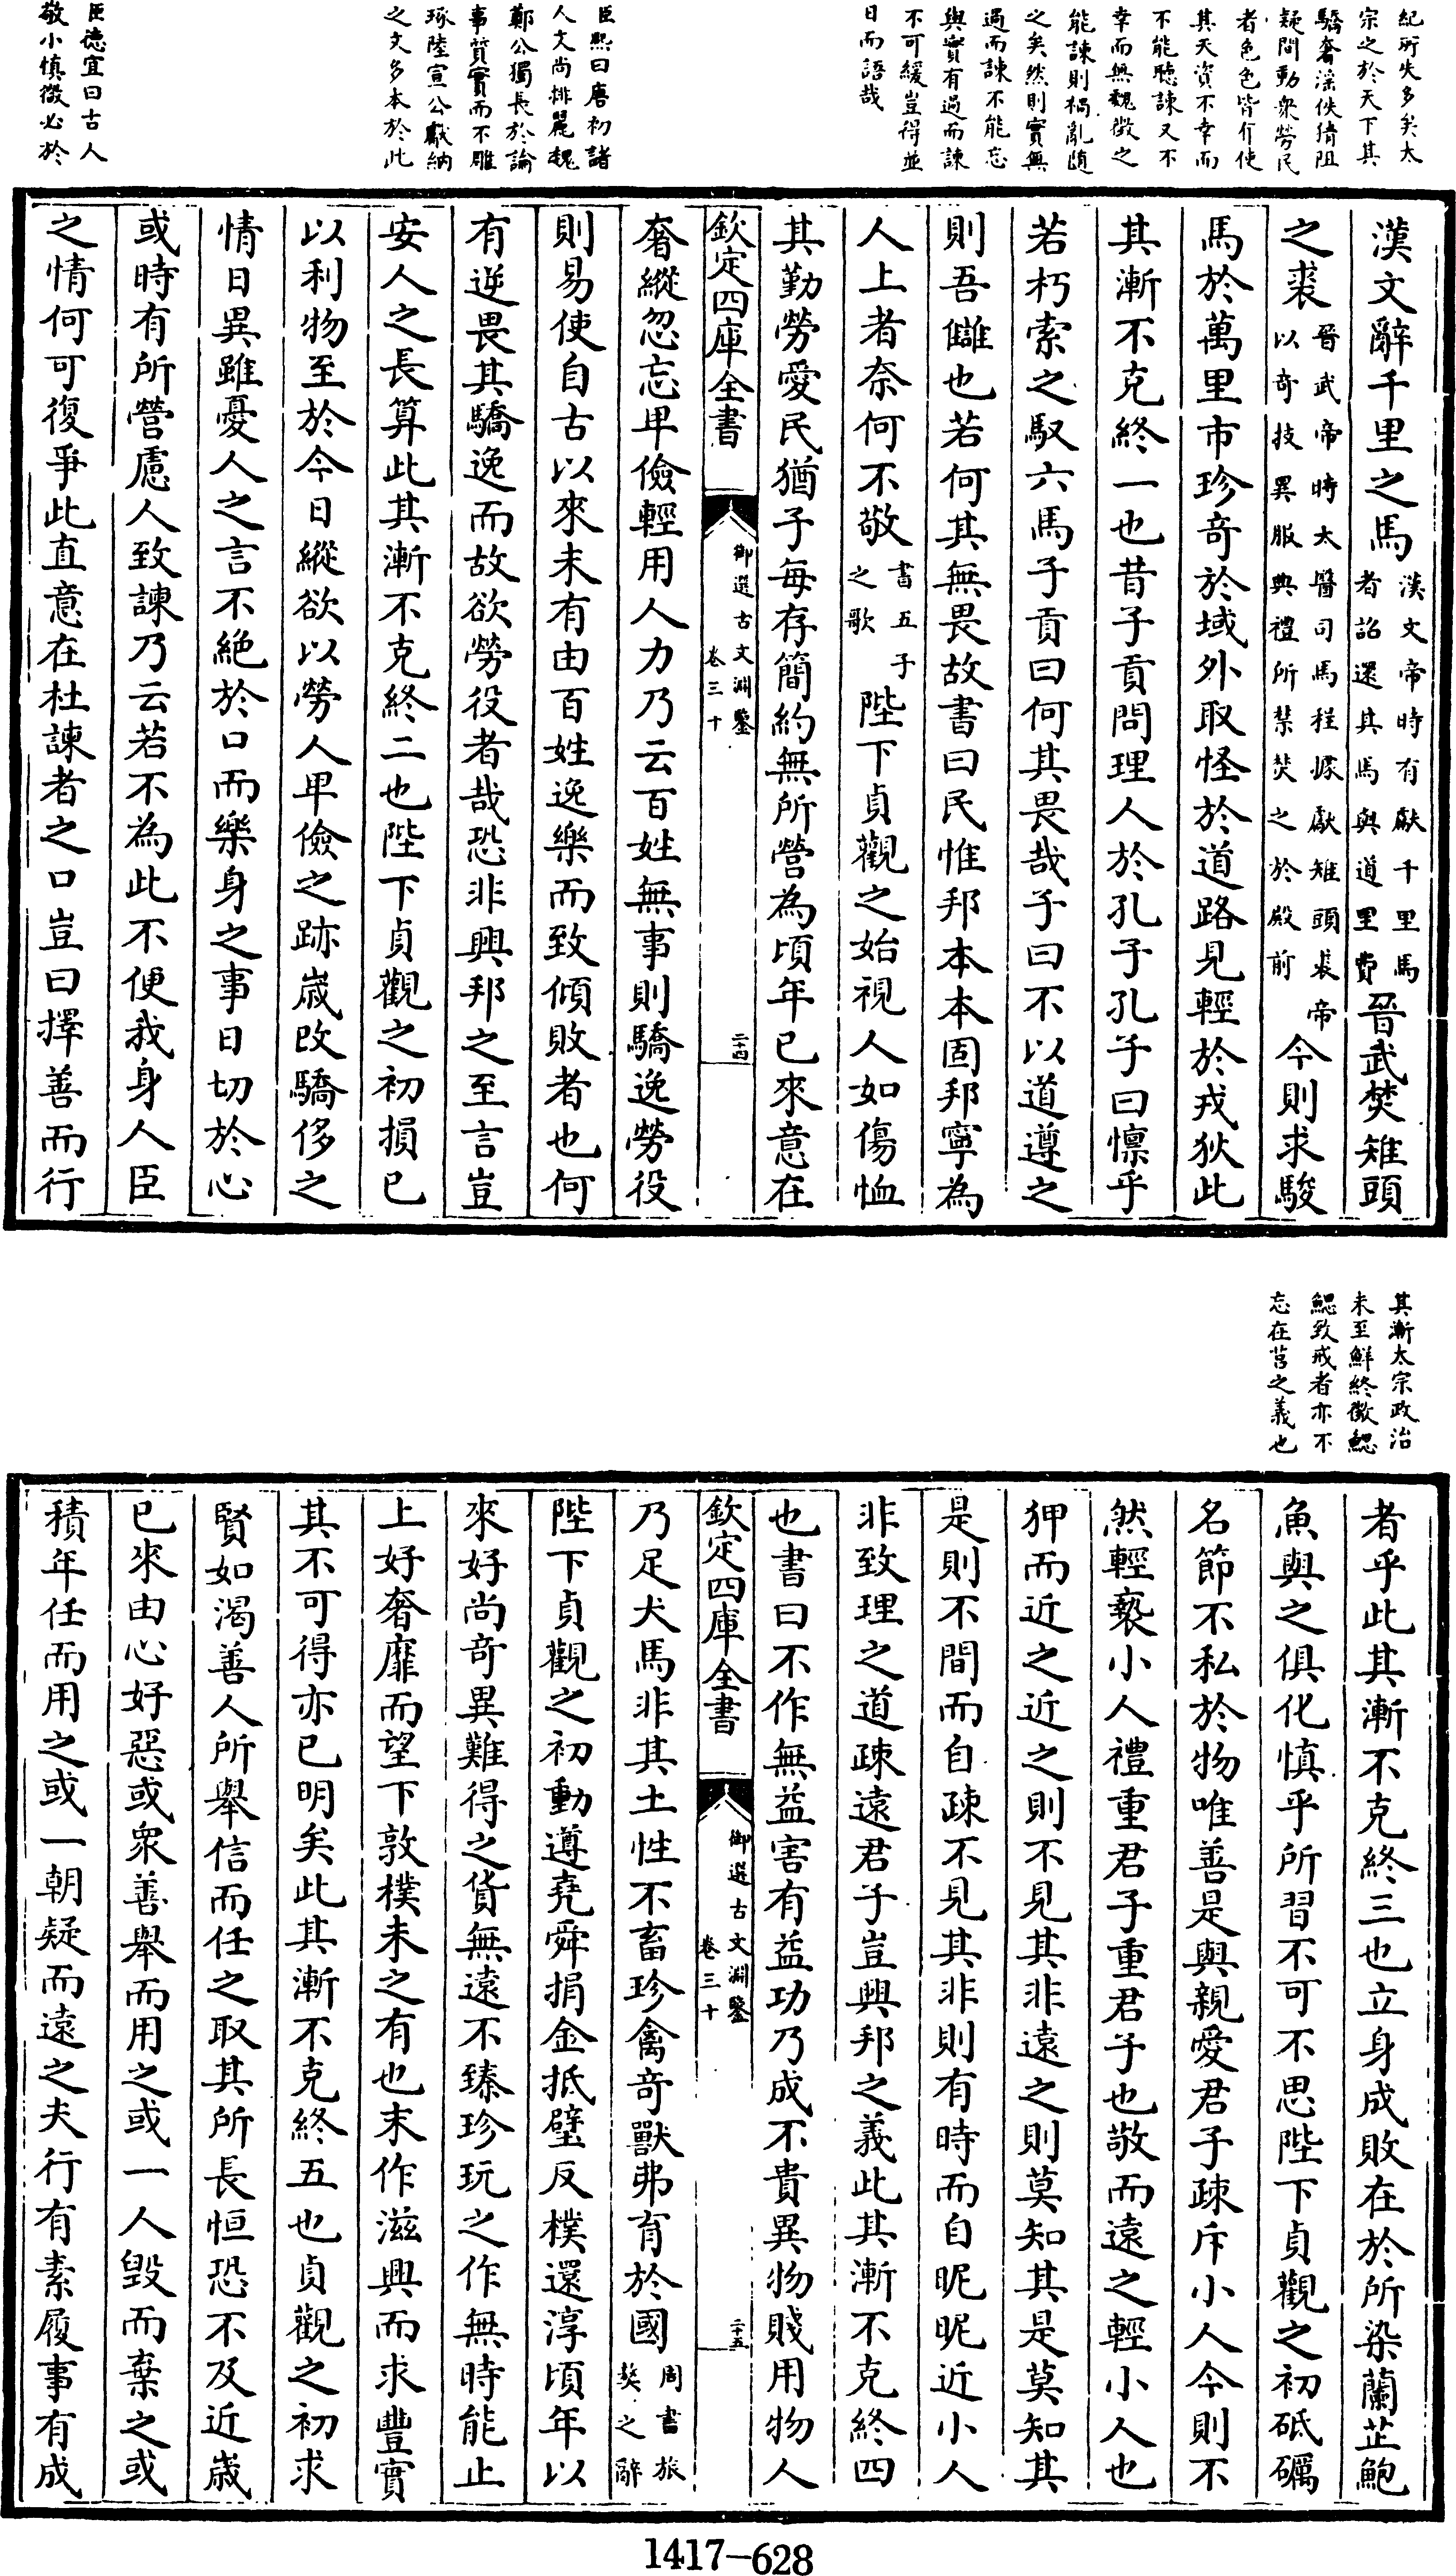 紀所失多矣太
宗之於天下其
驕奢淫佚猜阻
疑間動衆勞民
者色色皆有使
其天資不幸而
不能聽諫又不
幸而無魏徵之
能諫則禍亂隨
之矣然則實無
過而諫不能忘
與實有過而諫
不可緩豈得並
日而語哉
臣熙曰唐初諸
人文尚排麗魏
鄭公獨長於論
事質實而不雕
琢陸宣公獻納
之文多本於此
臣德宜曰古人
敬小慎徵必於
漢文辭千里之馬漢文帝時有獻千里馬者詔還其馬與道里費晉武焚雉頭
之裘晉武帝時太醫司馬程據獻雉頭裘帝以奇技異服典禮所禁焚之於殿前今則求駿
馬於萬里市珍奇於域外取怪於道路見輕於戎狄此
其漸不克終一也昔子貢問理人於孔子孔子曰懍乎
若朽索之馭六馬子貢曰何其畏哉子曰不以道遵之
則吾讎也若何其無畏故書曰民惟邦本本固邦寧為
人上者奈何不敬書五子之歌陛下貞觀之始視人如傷恤
其勤勞愛民猶子每存簡約無所營為頃年已來意在
欽定四庫全書 御選古文淵鑒 卷三十 二十四
奢縱忽忘卑儉輕用人力乃云百姓無事則驕逸勞役
則易使自古以來未有由百姓逸樂而致傾敗者也何
有逆畏其驕逸而故欲勞役者哉恐非興邦之至言豈
安人之長算此其漸不克終二也陛下貞觀之初損已
以利物至於今日縱欲以勞人卑儉之跡嵗改驕侈之
情日異雖憂人之言不絶於口而樂身之事日切於心
或時有所營慮人致諫乃云若不為此不便我身人臣
之情何可復爭此直意在杜諫者之口豈曰擇善而行
其漸太宗政治
未至鮮終徵鰓
鰓致戒者亦不
忘在莒之義也
者乎此其漸不克終三也立身成敗在於所染蘭芷鮑
魚與之俱化慎乎所習不可不思陛下貞觀之初砥礪
名節不私於物唯善是與親愛君子疎斥小人今則不
然輕褻小人禮重君子重君子也敬而遠之輕小人也
狎而近之近之則不見其非遠之則莫知其是莫知其
是則不間而自疎不見其非則有時而自昵昵近小人
非致理之道疎遠君子豈興邦之義此其漸不克終四
也書曰不作無益害有益功乃成不貴異物賤用物人
欽定四庫全書 御選古文淵鑒 卷三十 二十五
乃足犬馬非其土性不畜珍禽奇獸弗育於國周書旅獒之辭
陛下貞觀之初動遵堯舜捐金抵璧反樸還淳頃年以
來好尚奇異難得之貨無遠不臻珍玩之作無時能止
上好奢靡而望下敦樸未之有也末作滋興而求豐實
其不可得亦已明矣此其漸不克終五也貞觀之初求
賢如渴善人所舉信而任之取其所長恒恐不及近嵗
已來由心好惡或衆善舉而用之或一人毀而棄之或
積年任而用之或一朝疑而遠之夫行有素履事有成
1417-628